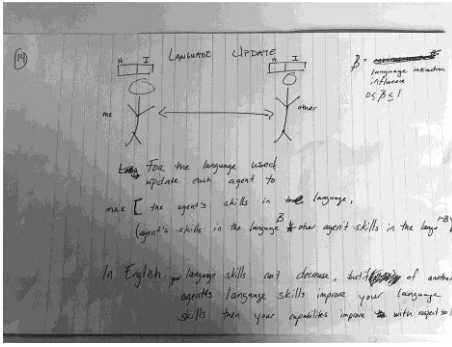 29
LANGUAGE UPDATE
A I
A I
me
other
β =
language interaction
influence
0 ≤ β ≤ 1
For the language used
update each agent to
max [ the agent's skills in the language,
(agent's skills in the language^β * other agent skills in the lang
In English, your language skills can't decrease, but if of another
agent's language skills improve your language
skills then your capabilites improve with respect to